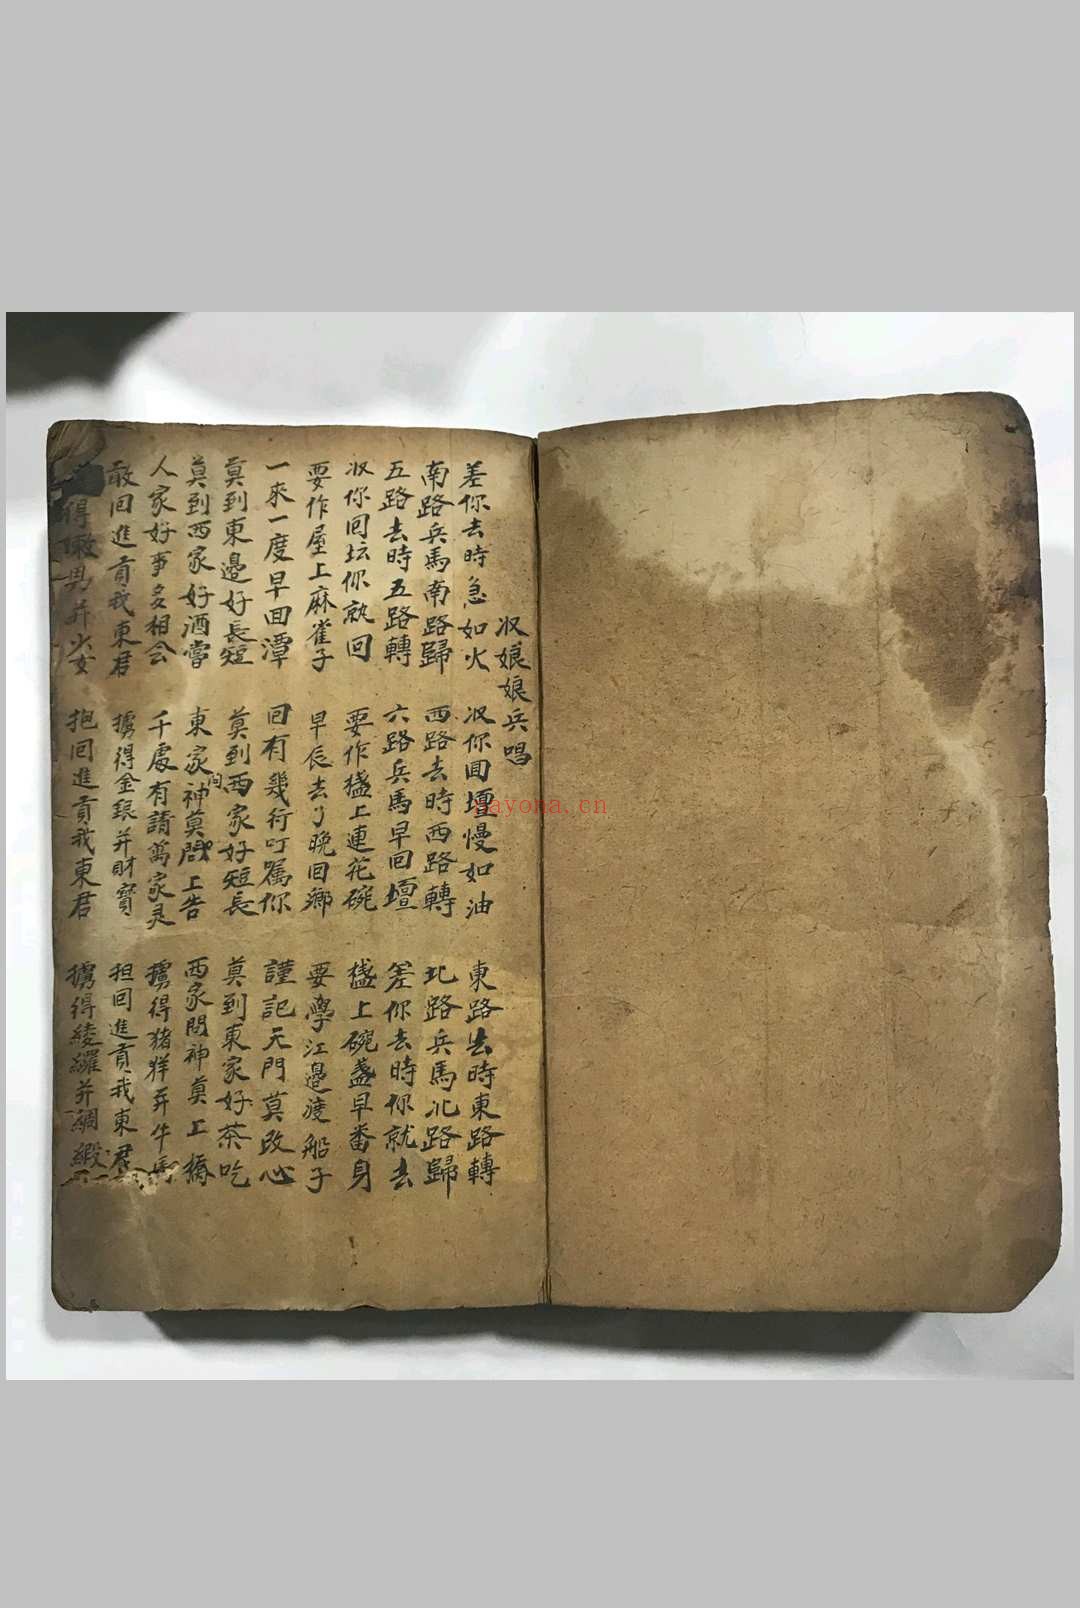 収娘娘兵唱
差你去時急如火 収你囬壇慢如油 東路去時東路轉
南路兵馬南路歸 西路去時西路轉 北路兵馬北路歸
五路去時五路轉 六路兵馬早回壇 差你去時你就去
収你囘坛你就回 要作盞上連花碗 盞上碗盞早番身
要作屋上麻雀子 早辰去了晚回鄉 要學江邊渡船子
一來一度早回潭 回有幾行叮嘱你 謹記天門莫改心
莫到東邉好長短 莫到西家好短長 莫到東家好茶吃
莫到西家好酒嘗 東家問神莫上告 西家問神莫上橋
人家好事多相会 千處有請萬家灵 擄得猪羊并牛馬
敢回進貢我東君 擄得金銀并財寳 担回進貢我東君
得 男并火女 抱回進貢我東君 擄得綾羅并綢緞
nayona.cn